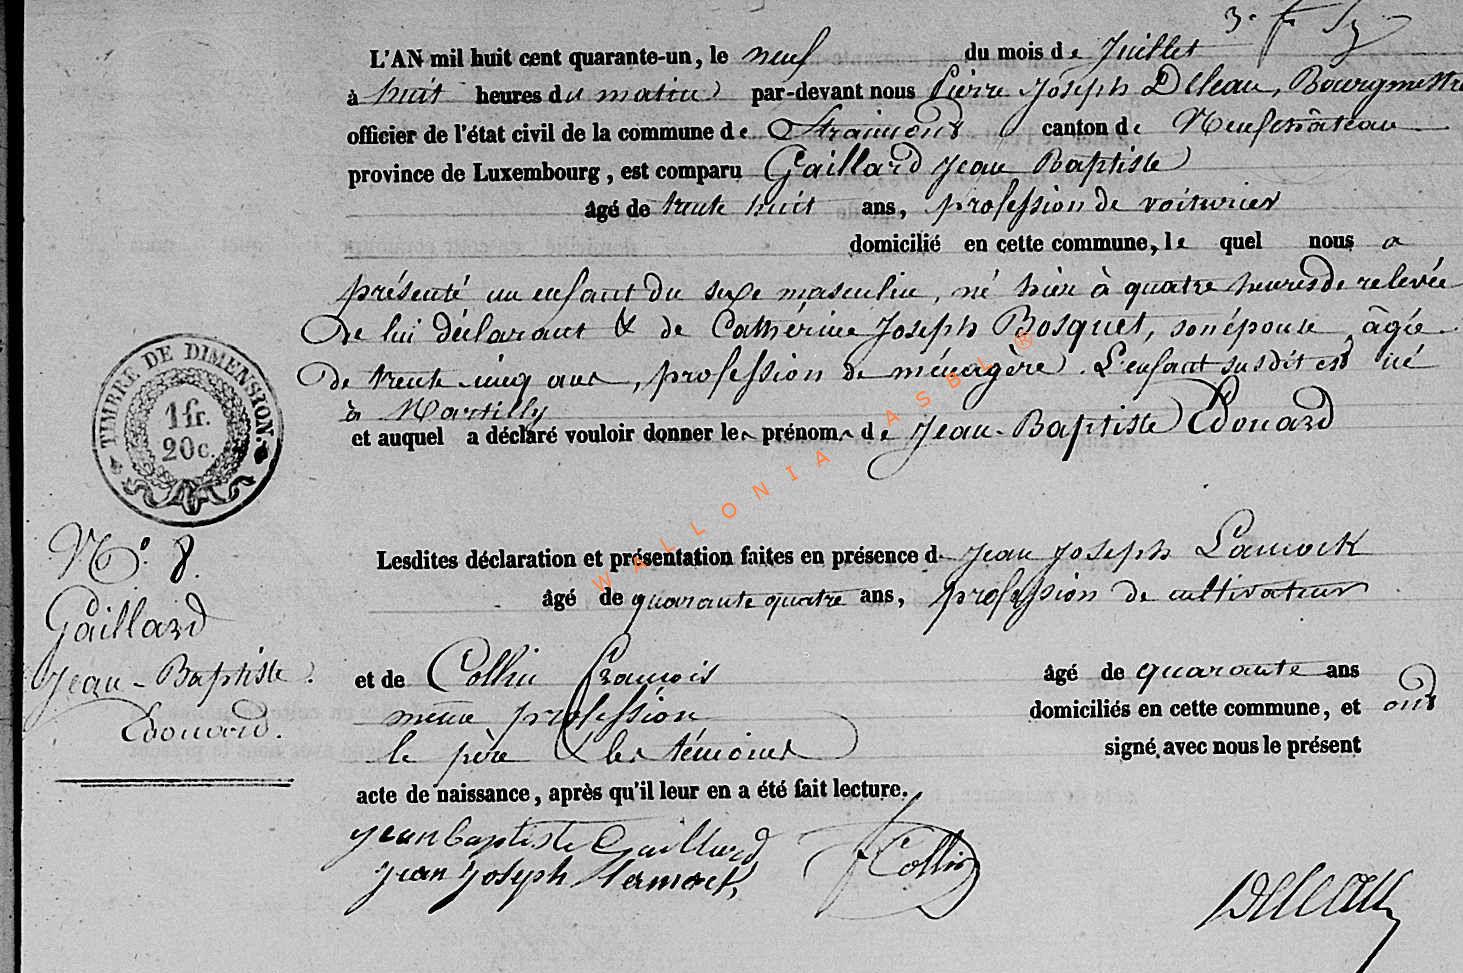 L'AN mil huit cent quarante-un, le neuf du mois de Juillet
à huit heures du matin par-devant nous Pierre Joseph Deleau, Bourgmestre
officier de l'état civil de la commune de Straimont canton de Neufchâteau
province de Luxembourg, est comparu Gaillard Jean Baptiste
âgé de trente huit ans, profession de voiturier
domicilié en cette commune, le quel nous a
présenté un enfant du sexe masculin, né hier à quatre heures de relevée
de lui déclarant & de Cathérine Joseph Bosquet, son épouse, âgée
de trente cinq ans, profession de ménagère. L'enfant susdit est né
à Martilly
et auquel a déclaré vouloir donner les prénoms de Jean-Baptiste Edouard
TIMBRE DE DIMENSION.
1 fr.
20 c.
N° 8.
Gaillard
Jean-Baptiste
Edouard.
Lesdites déclaration et présentation faites en présence de Jean Joseph
âgé de quarante quatre ans, profession de cultivateur
et de Collin François âgé de quarante ans
même profession domiciliés en cette commune, et ont
le père & les témoins signé avec nous le présent
acte de naissance, après qu'il leur en a été fait lecture.
jean baptiste Gaillard
jean joseph
F Collin
Deleau
WALLONIA ASBL ®